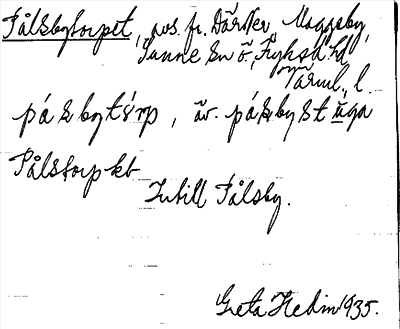 Pålsbytorpet, avs. fr. Därster Maggeby,
Sunne sn ö., Fryksd. hd
Värml. l.
påsbytórp, äv. påsbystuga
Pålstorp kb
Intill Pålsby.
Greta Hedin 1935.